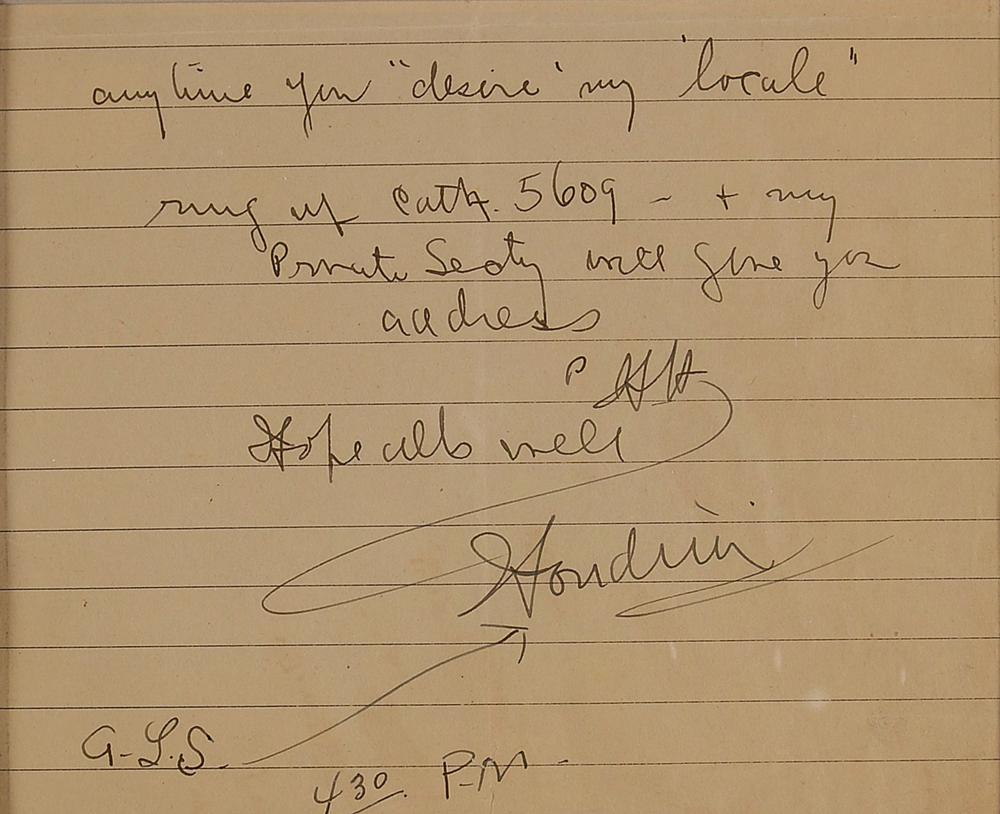 anytime you "desire" my "locale"
ring up Cath. 5609 - + my
Private Secty will give you
address
HH
Hope alls well
Houdini
G.L.S.
430 P.M -